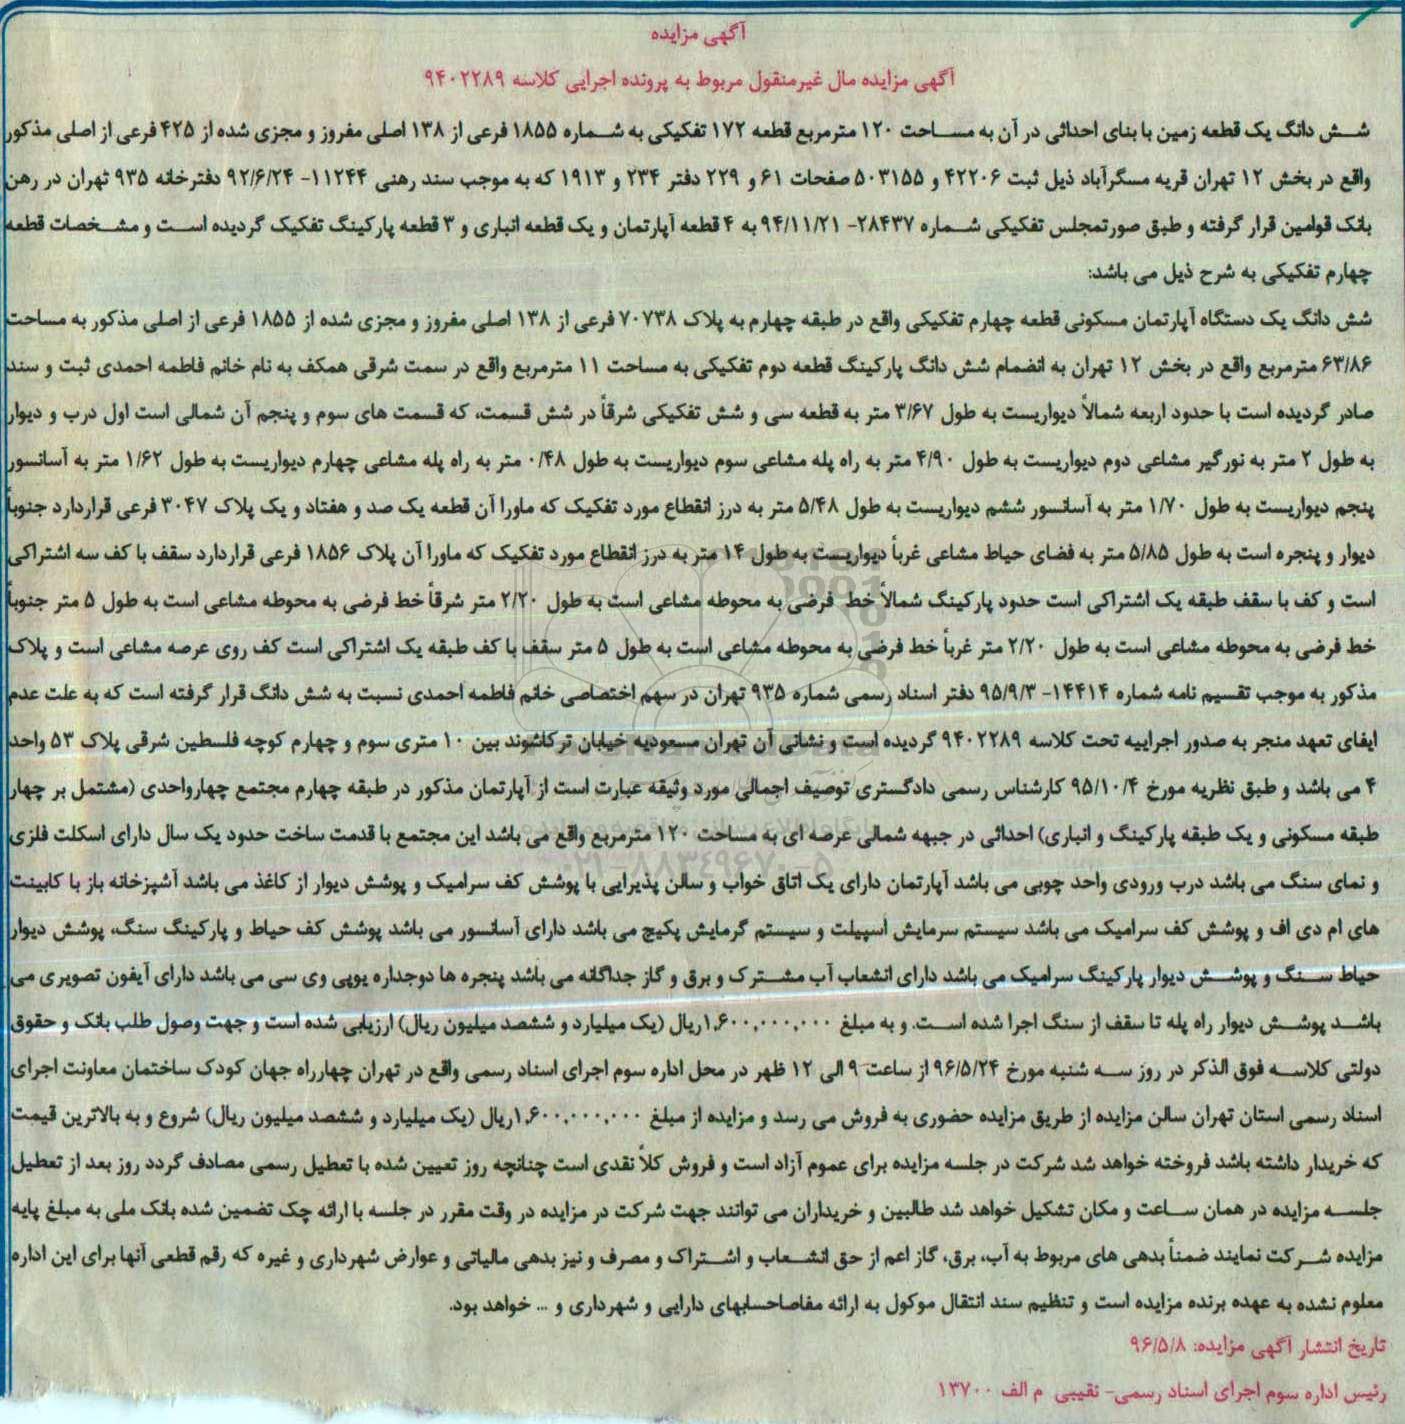 آگهی مزایده
آگهی مزایده مال غیرمنقول مربوط به پرونده اجرایی کلاسه ۹۴۰۲۲۸۹
شش دانگ یک قطعه زمین با بنای احداثی در آن به مساحت ۱۲۰ مترمربع قطعه ۱۷۲ تفکیکی به شماره ۱۸۵۵ فرعی از ۱۳۸ اصلی مفروز و مجزی شده از ۴۲۵ فرعی از اصلی مذکور
واقع در بخش ۱۲ تهران قریه مسگرآباد ذیل ثبت ۴۲۲۰۶ و ۵۰۳۱۵۵ صفحات ۶۱ و ۲۲۹ دفتر ۲۳۴ و ۱۹۱۳ که به موجب سند رهنی ۱۱۲۴۴- ۹۲/۶/۲۴ دفترخانه ۹۳۵ تهران در رهن
بانک قوامین قرار گرفته و طبق صورتمجلس تفکیکی شماره ۲۸۴۳۷- ۹۴/۱۱/۲۱ به ۴ قطعه آپارتمان و یک قطعه انباری و ۳ قطعه پارکینگ تفکیک گردیده است و مشخصات قطعه
چهارم تفکیکی به شرح ذیل می باشد:
شش دانگ یک دستگاه آپارتمان مسکونی قطعه چهارم تفکیکی واقع در طبقه چهارم به پلاک ۷۰۷۳۸ فرعی از ۱۳۸ اصلی مفروز و مجزی شده از ۱۸۵۵ فرعی از اصلی مذکور به مساحت
۶۳/۸۶ مترمربع واقع در بخش ۱۲ تهران به انضمام شش دانگ پارکینگ قطعه دوم تفکیکی به مساحت ۱۱ مترمربع واقع در سمت شرقی همکف به نام خانم فاطمه احمدی ثبت و سند
صادر گردیده است با حدود اربعه شمالاً دیواریست به طول ۳/۶۷ متر به قطعه سی و شش تفکیکی شرقاً در شش قسمت، که قسمت های سوم و پنجم آن شمالی است اول درب و دیوار
به طول ۲ متر به نورگیر مشاعی دوم دیواریست به طول ۴/۹۰ متر به راه پله مشاعی سوم دیواریست به طول ۰/۴۸ متر به راه پله مشاعی چهارم دیواریست به طول ۱/۶۲ متر به آسانسور
پنجم دیواریست به طول ۱/۷۰ متر به آسانسور ششم دیواریست به طول ۵/۴۸ متر به درز انقطاع مورد تفکیک که ماورا آن قطعه یک صد و هفتاد و یک پلاک ۳۰۴۷ فرعی قراردارد جنوباً
دیوار و پنجره است به طول ۵/۸۵ متر به فضای حیاط مشاعی غرباً دیواریست به طول ۱۴ متر به درز انقطاع مورد تفکیک که ماورا آن پلاک ۱۸۵۶ فرعی قراردارد سقف با کف سه اشتراکی
است و کف با سقف طبقه یک اشتراکی است حدود پارکینگ شمالاً خط فرضی به محوطه مشاعی است به طول ۲/۲۰ متر شرقاً خط فرضی به محوطه مشاعی است به طول ۵ متر جنوباً
خط فرضی به محوطه مشاعی است به طول ۲/۲۰ متر غرباً خط فرضی به محوطه مشاعی است به طول ۵ متر سقف با کف طبقه یک اشتراکی است کف روی عرصه مشاعی است و پلاک
مذکور به موجب تقسیم نامه شماره ۱۴۴۱۴- ۹۵/۹/۳ دفتر اسناد رسمی شماره ۹۳۵ تهران در سهم اختصاصی خانم فاطمه احمدی نسبت به شش دانگ قرار گرفته است که به علت عدم
ایفای تعهد منجر به صدور اجراییه تحت کلاسه ۹۴۰۲۲۸۹ گردیده است و نشانی آن تهران مسعودیه خیابان ترکاشوند بین ۱۰ متری سوم و چهارم کوچه فلسطین شرقی پلاک ۵۳ واحد
۴ می باشد و طبق نظریه مورخ ۹۵/۱۰/۴ کارشناس رسمی دادگستری توصیف اجمالی مورد وثیقه عبارت است از آپارتمان مذکور در طبقه چهارم مجتمع چهارواحدی (مشتمل بر چهار
طبقه مسکونی و یک طبقه پارکینگ و انباری) احداثی در جبهه شمالی عرصه ای به مساحت ۱۲۰ مترمربع واقع می باشد این مجتمع با قدمت ساخت حدود یک سال دارای اسکلت فلزی
و نمای سنگ می باشد درب ورودی واحد چوبی می باشد آپارتمان دارای یک اتاق خواب و سالن پذیرایی با پوشش کف سرامیک و پوشش دیوار از کاغذ می باشد آشپزخانه باز با کابینت
های ام دی اف و پوشش کف سرامیک می باشد سیستم سرمایش اسپیلت و سیستم گرمایش پکیج می باشد دارای آسانسور می باشد پوشش کف حیاط و پارکینگ سنگ، پوشش دیوار
حیاط سنگ و پوشش دیوار پارکینگ سرامیک می باشد دارای انشعاب آب مشترک و برق و گاز جداگانه می باشد پنجره ها دوجداره یوپی وی سی می باشد دارای آیفون تصویری می
باشد پوشش دیوار راه پله تا سقف از سنگ اجرا شده است. و به مبلغ ۱,۶۰۰,۰۰۰,۰۰۰ریال (یک میلیارد و ششصد میلیون ریال) ارزیابی شده است و جهت وصول طلب بانک و حقوق
دولتی کلاسه فوق الذکر در روز سه شنبه مورخ ۹۶/۵/۲۴ از ساعت ۹ الی ۱۲ ظهر در محل اداره سوم اجرای اسناد رسمی واقع در تهران چهارراه جهان کودک ساختمان معاونت اجرای
اسناد رسمی استان تهران سالن مزایده از طریق مزایده حضوری به فروش می رسد و مزایده از مبلغ ۱,۶۰۰,۰۰۰,۰۰۰ریال (یک میلیارد و ششصد میلیون ریال) شروع و به بالاترین قیمت
که خریدار داشته باشد فروخته خواهد شد شرکت در جلسه مزایده برای عموم آزاد است و فروش کلاً نقدی است چنانچه روز تعیین شده با تعطیل رسمی مصادف گردد روز بعد از تعطیل
جلسه مزایده در همان ساعت و مکان تشکیل خواهد شد طالبین و خریداران می توانند جهت شرکت در مزایده در وقت مقرر در جلسه با ارائه چک تضمین شده بانک ملی به مبلغ پایه
مزایده شرکت نمایند ضمناً بدهی های مربوط به آب، برق، گاز اعم از حق انشعاب و اشتراک و مصرف و نیز بدهی مالیاتی و عوارض شهرداری و غیره که رقم قطعی آنها برای این اداره
معلوم نشده به عهده برنده مزایده است و تنظیم سند انتقال موکول به ارائه مفاصاحسابهای دارایی و شهرداری و ... خواهد بود.
تاریخ انتشار آگهی مزایده: ۹۶/۵/۸
رئیس اداره سوم اجرای اسناد رسمی- نقیبی م الف ۱۳۷۰۰
۰۲۱-۸۸۳۴۹۶۷۰-۵